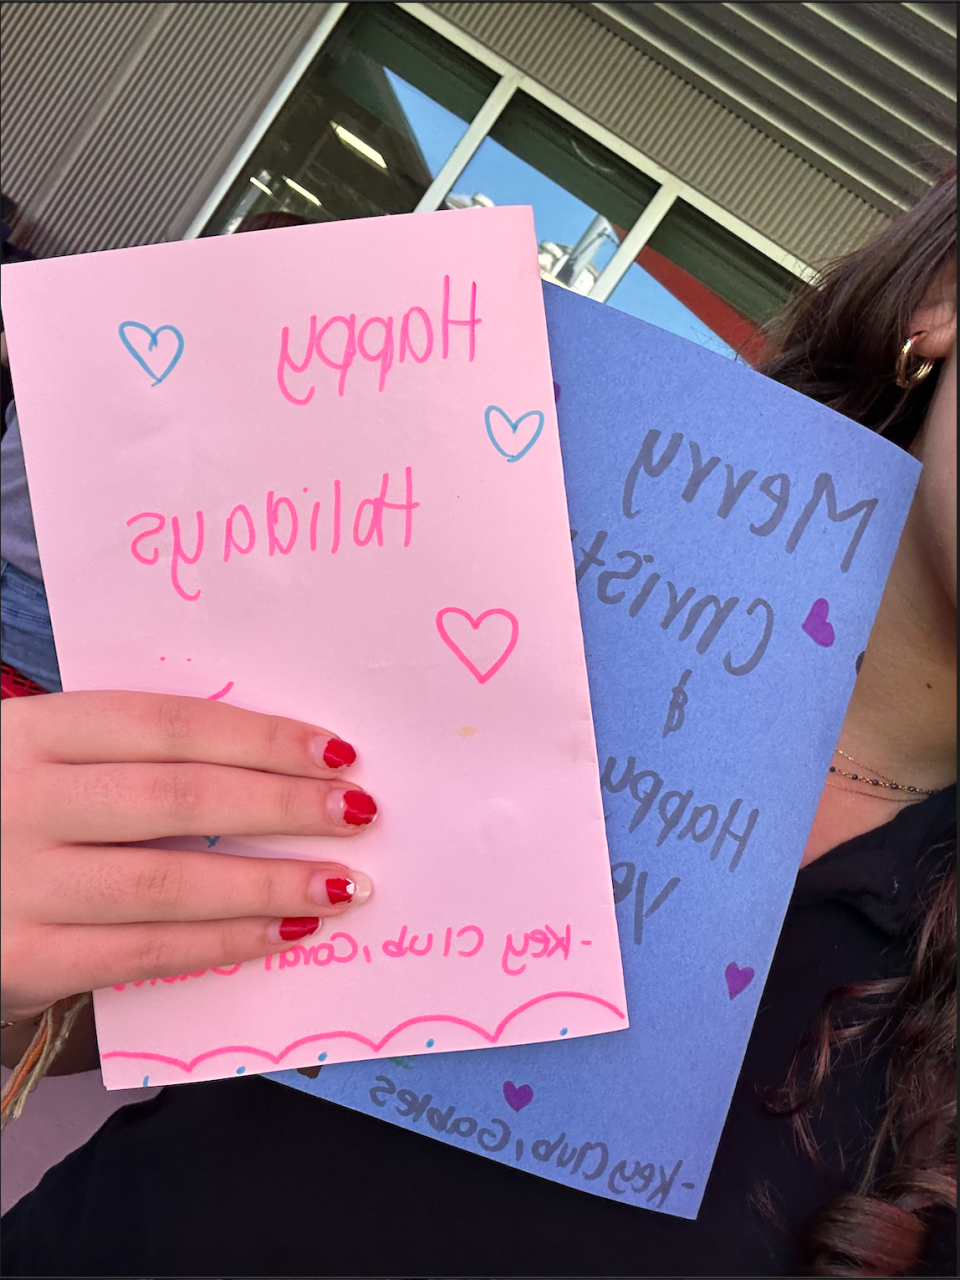 Happy
Holidays
-Key Club, Coral
Merry
Christ
&
Happy
Ye
-Key Club, Gables